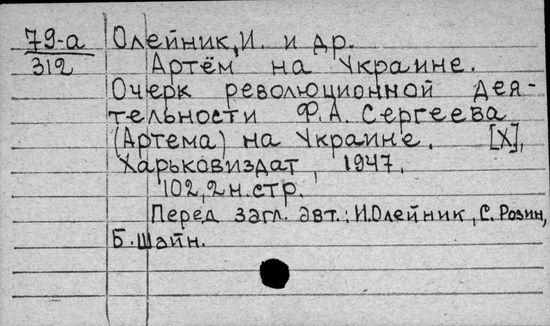 79-а Олейник, И. и др.
312 Артём на Украине.
Очерк революционной дея-
тельности Ф.А. Сергеева
(Артема) на Украине. [Х],
Харьковиздат, 1947.
102, 2 н. стр.
Перед загл. авт.: И. Олейник, С. Розин,
Б. Шайн.